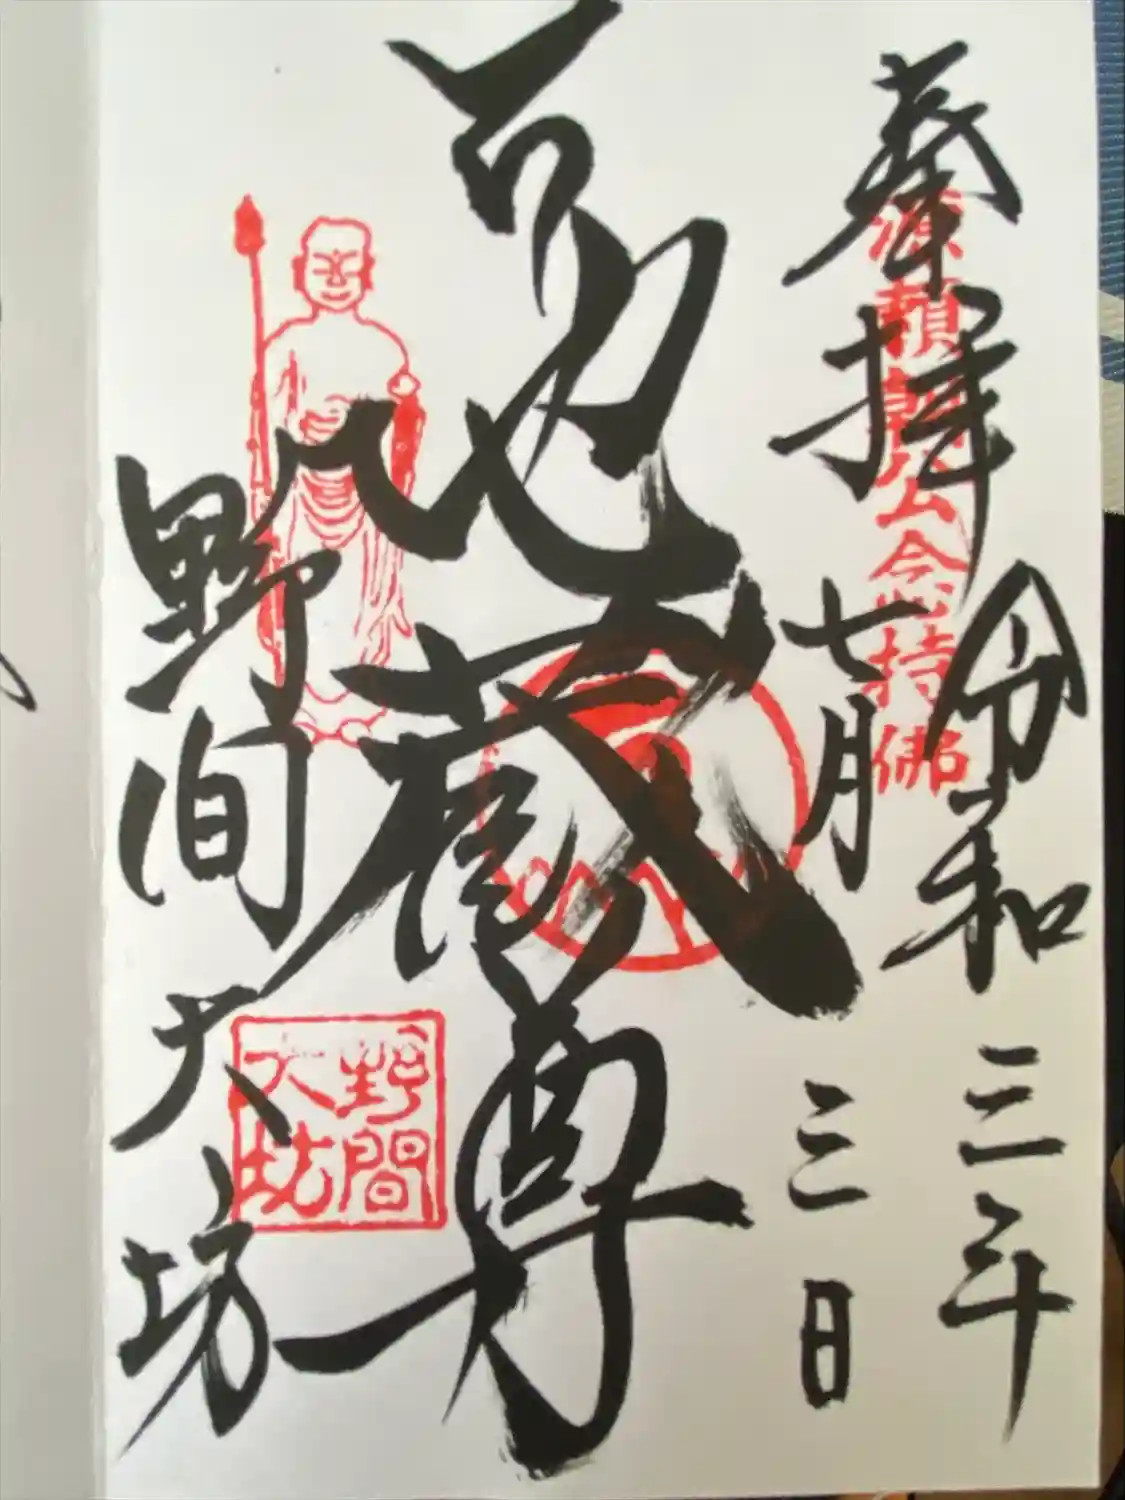 奉拝
源頼朝公念持佛
令和三年
七月三日
地蔵尊
野間大坊
野間
大坊